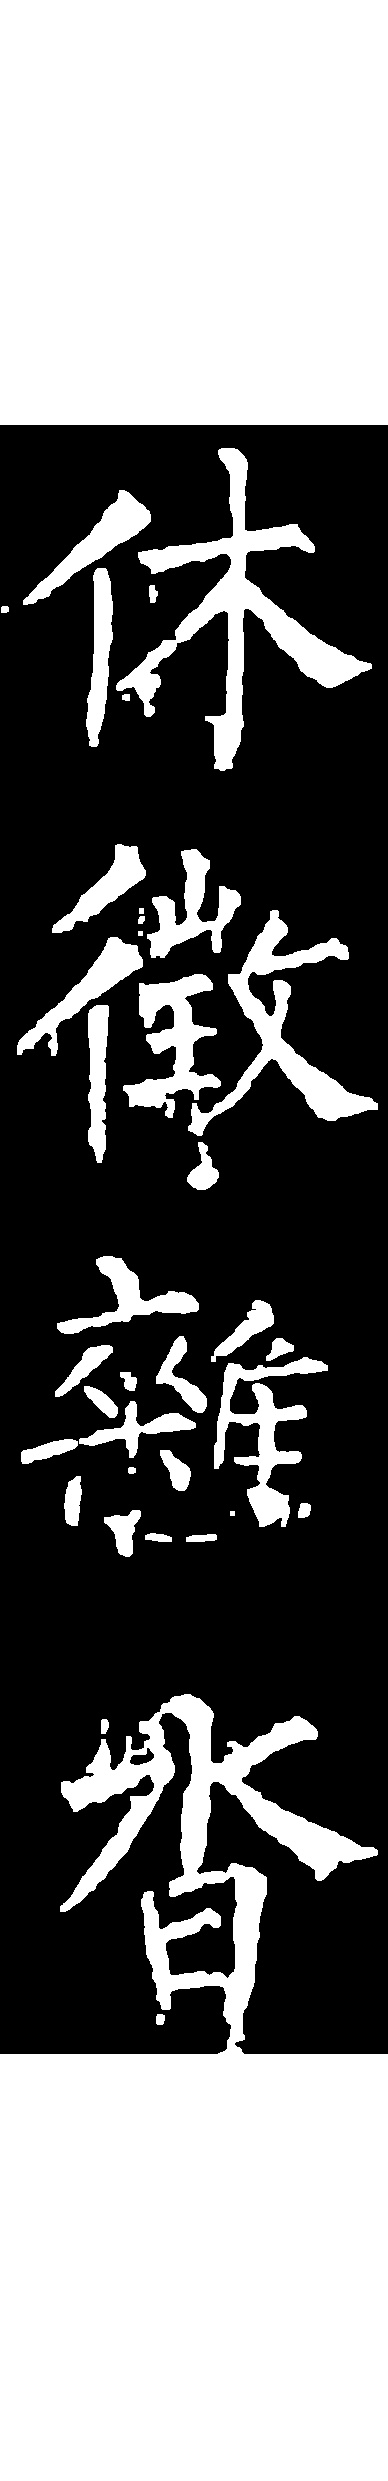 休徵雜沓